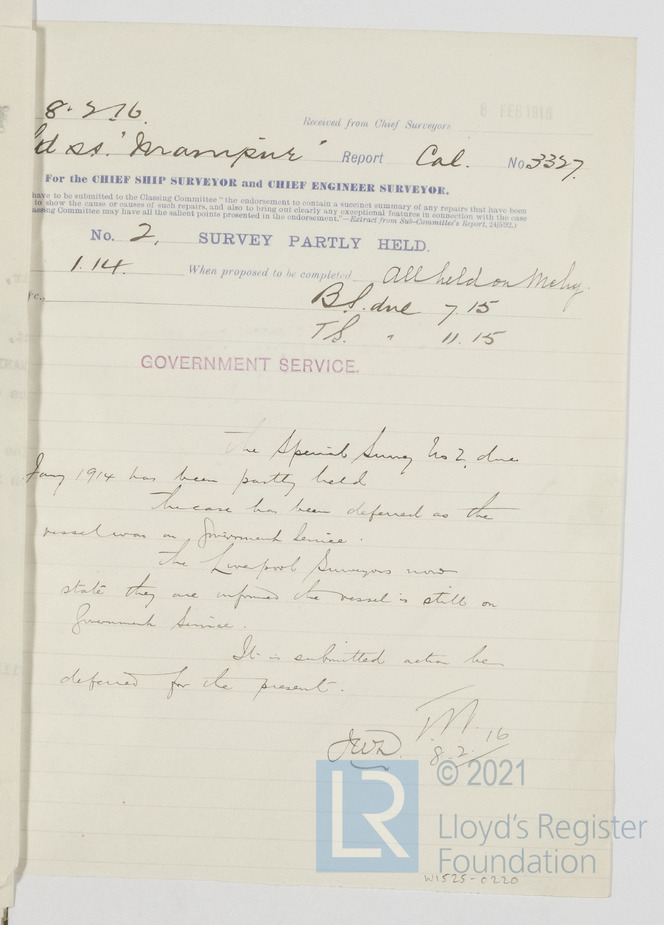 8.2.16.
Received from Chief Surveyors
8 FEB 1916
ss. "Mrampur" Report Cal. No. 3327.
For the CHIEF SHIP SURVEYOR and CHIEF ENGINEER SURVEYOR.
have to be submitted to the Classing Committee "the endorsement to contain a succinct summary of any repairs that have been
to show the cause or causes of such repairs, and also to bring out clearly any exceptional features in connection with the case
Classing Committee may have all the salient points presented in the endorsement."—Extract from Sub-Committee's Report, 24/5/92.)
No. 2, SURVEY PARTLY HELD.
1.14. When proposed to be completed All held on Mchy.
B.S. due 7.15
T.S. " 11.15
GOVERNMENT SERVICE.
The Special Survey No 2, due
Jany 1914 has been partly held
The case has been deferred as the
vessel was on Government Service.
The Liverpool Surveyors now
state they are informed the vessel is still on
Government Service.
It is submitted action be
deferred for the present.
T.M.
8.2.16
JWD.
© 2021
LR
Lloyd's Register
Foundation
W1525-0220